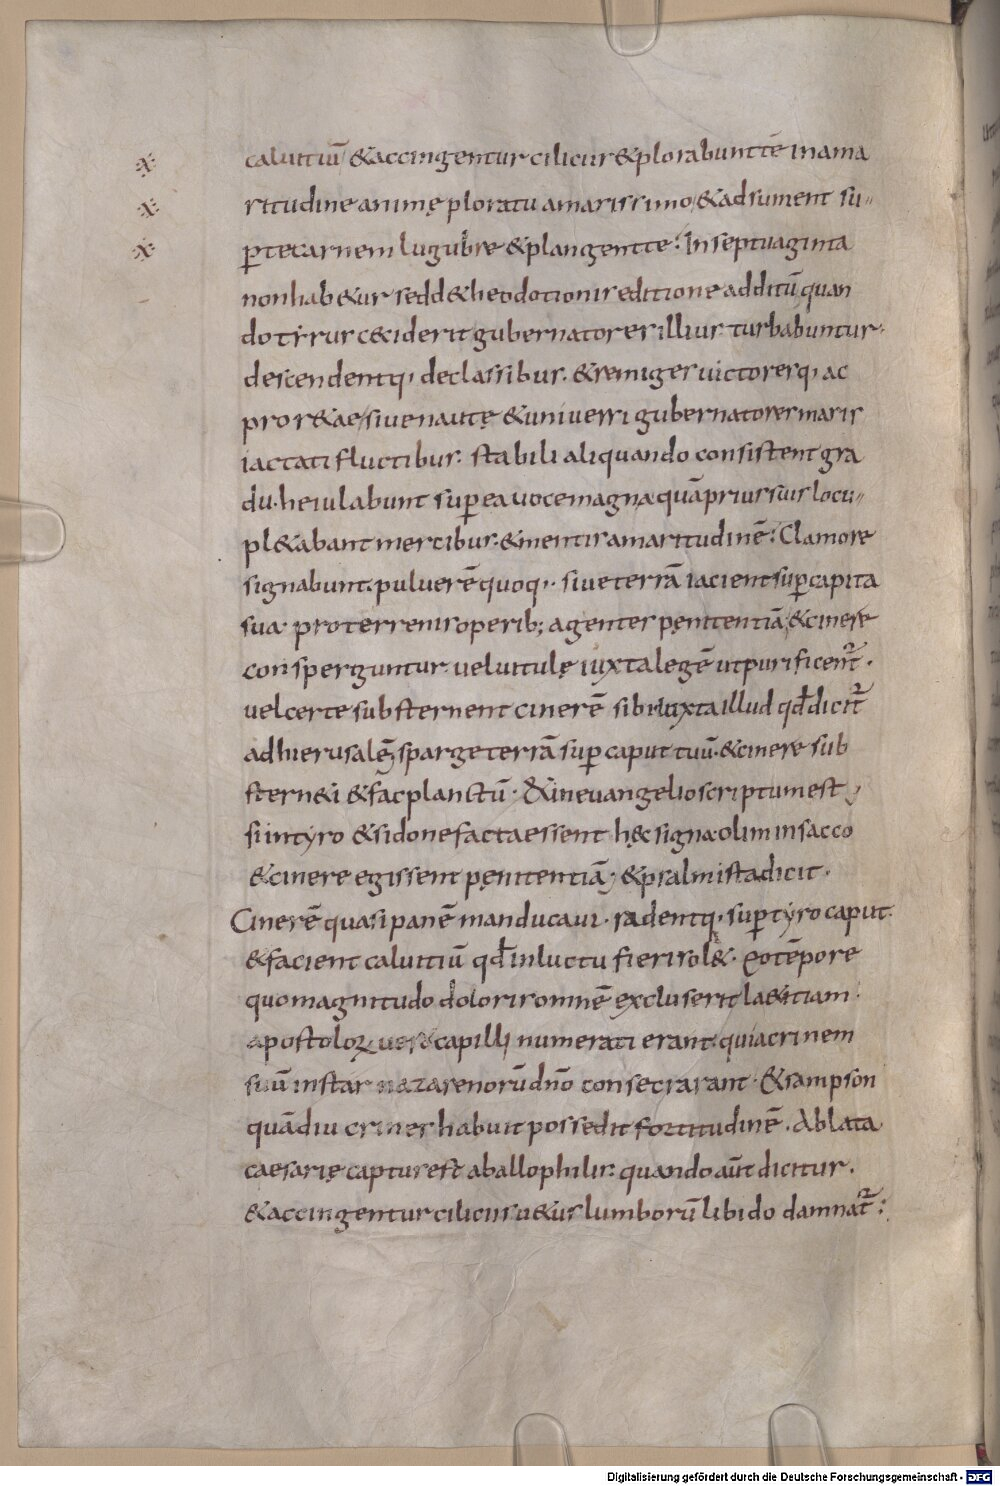 ※ caluitiū &accingentur ciliciis &plorabunt tē inama
※ ritudine animę ploratu amarissimo, &adsument su-
※ ꝑ te carnem lugubre &plangent te: In septuaginta
non hab&ur sed d& heodotionis editione additū quan
do tẏrus c&iderit gubernatores illius turbabuntur.
descendentq; declassibus. &remiges uictoresq; ac
pror&ae, siue nautę &uniuersi gubernatores maris
iactati fluctibus. stabili aliquando consistent gra
du. heiulabunt suꝑ ea uoce magna quā prius suis locu-
pl&abant mercibus. &mentis amaritudinē: Clamore
signabunt. puluerē quoq;. siue terrā iacient suꝑ capita
sua. pro terrenis operib; agentes pęnitentiā, &cinere
consperguntur. uel uitulę iuxta legē ut purificent᷒.
uel certe substernent cinerē sibi iuxta illud qđ dicit᷒
ad hierusalē, sparge terrā suꝑ caput tuū. &cinere sub
stern&i &fac planctū. &in euangelio scriptum est,
si in tyro &sidone facta essent hęc signa olim in sacco
&cinere egissent pęnitentiā, &psalmista dicit.
Cinerē quasi panē manducaui. radentq; suꝑ tẏro caput
&facient caluitiū qđ in luctu fieri sol&. eo tēpore
quo magnitudo doloris omnē excluserit la&itiam.
apostoloꝝ uero capilli numerati erant. quia crinem
suū instar nazarenorū dn̄o consecrarant. &sampson
quādiu crines habuit possedit fortitudinē. Ablata
caesarię captus est ab allophilis. quando aūt dicitur.
&accingentur ciliciis u&us lumborū libido damnat᷒:
Digitalisierung gefördert durch die Deutsche Forschungsgemeinschaft - DFG